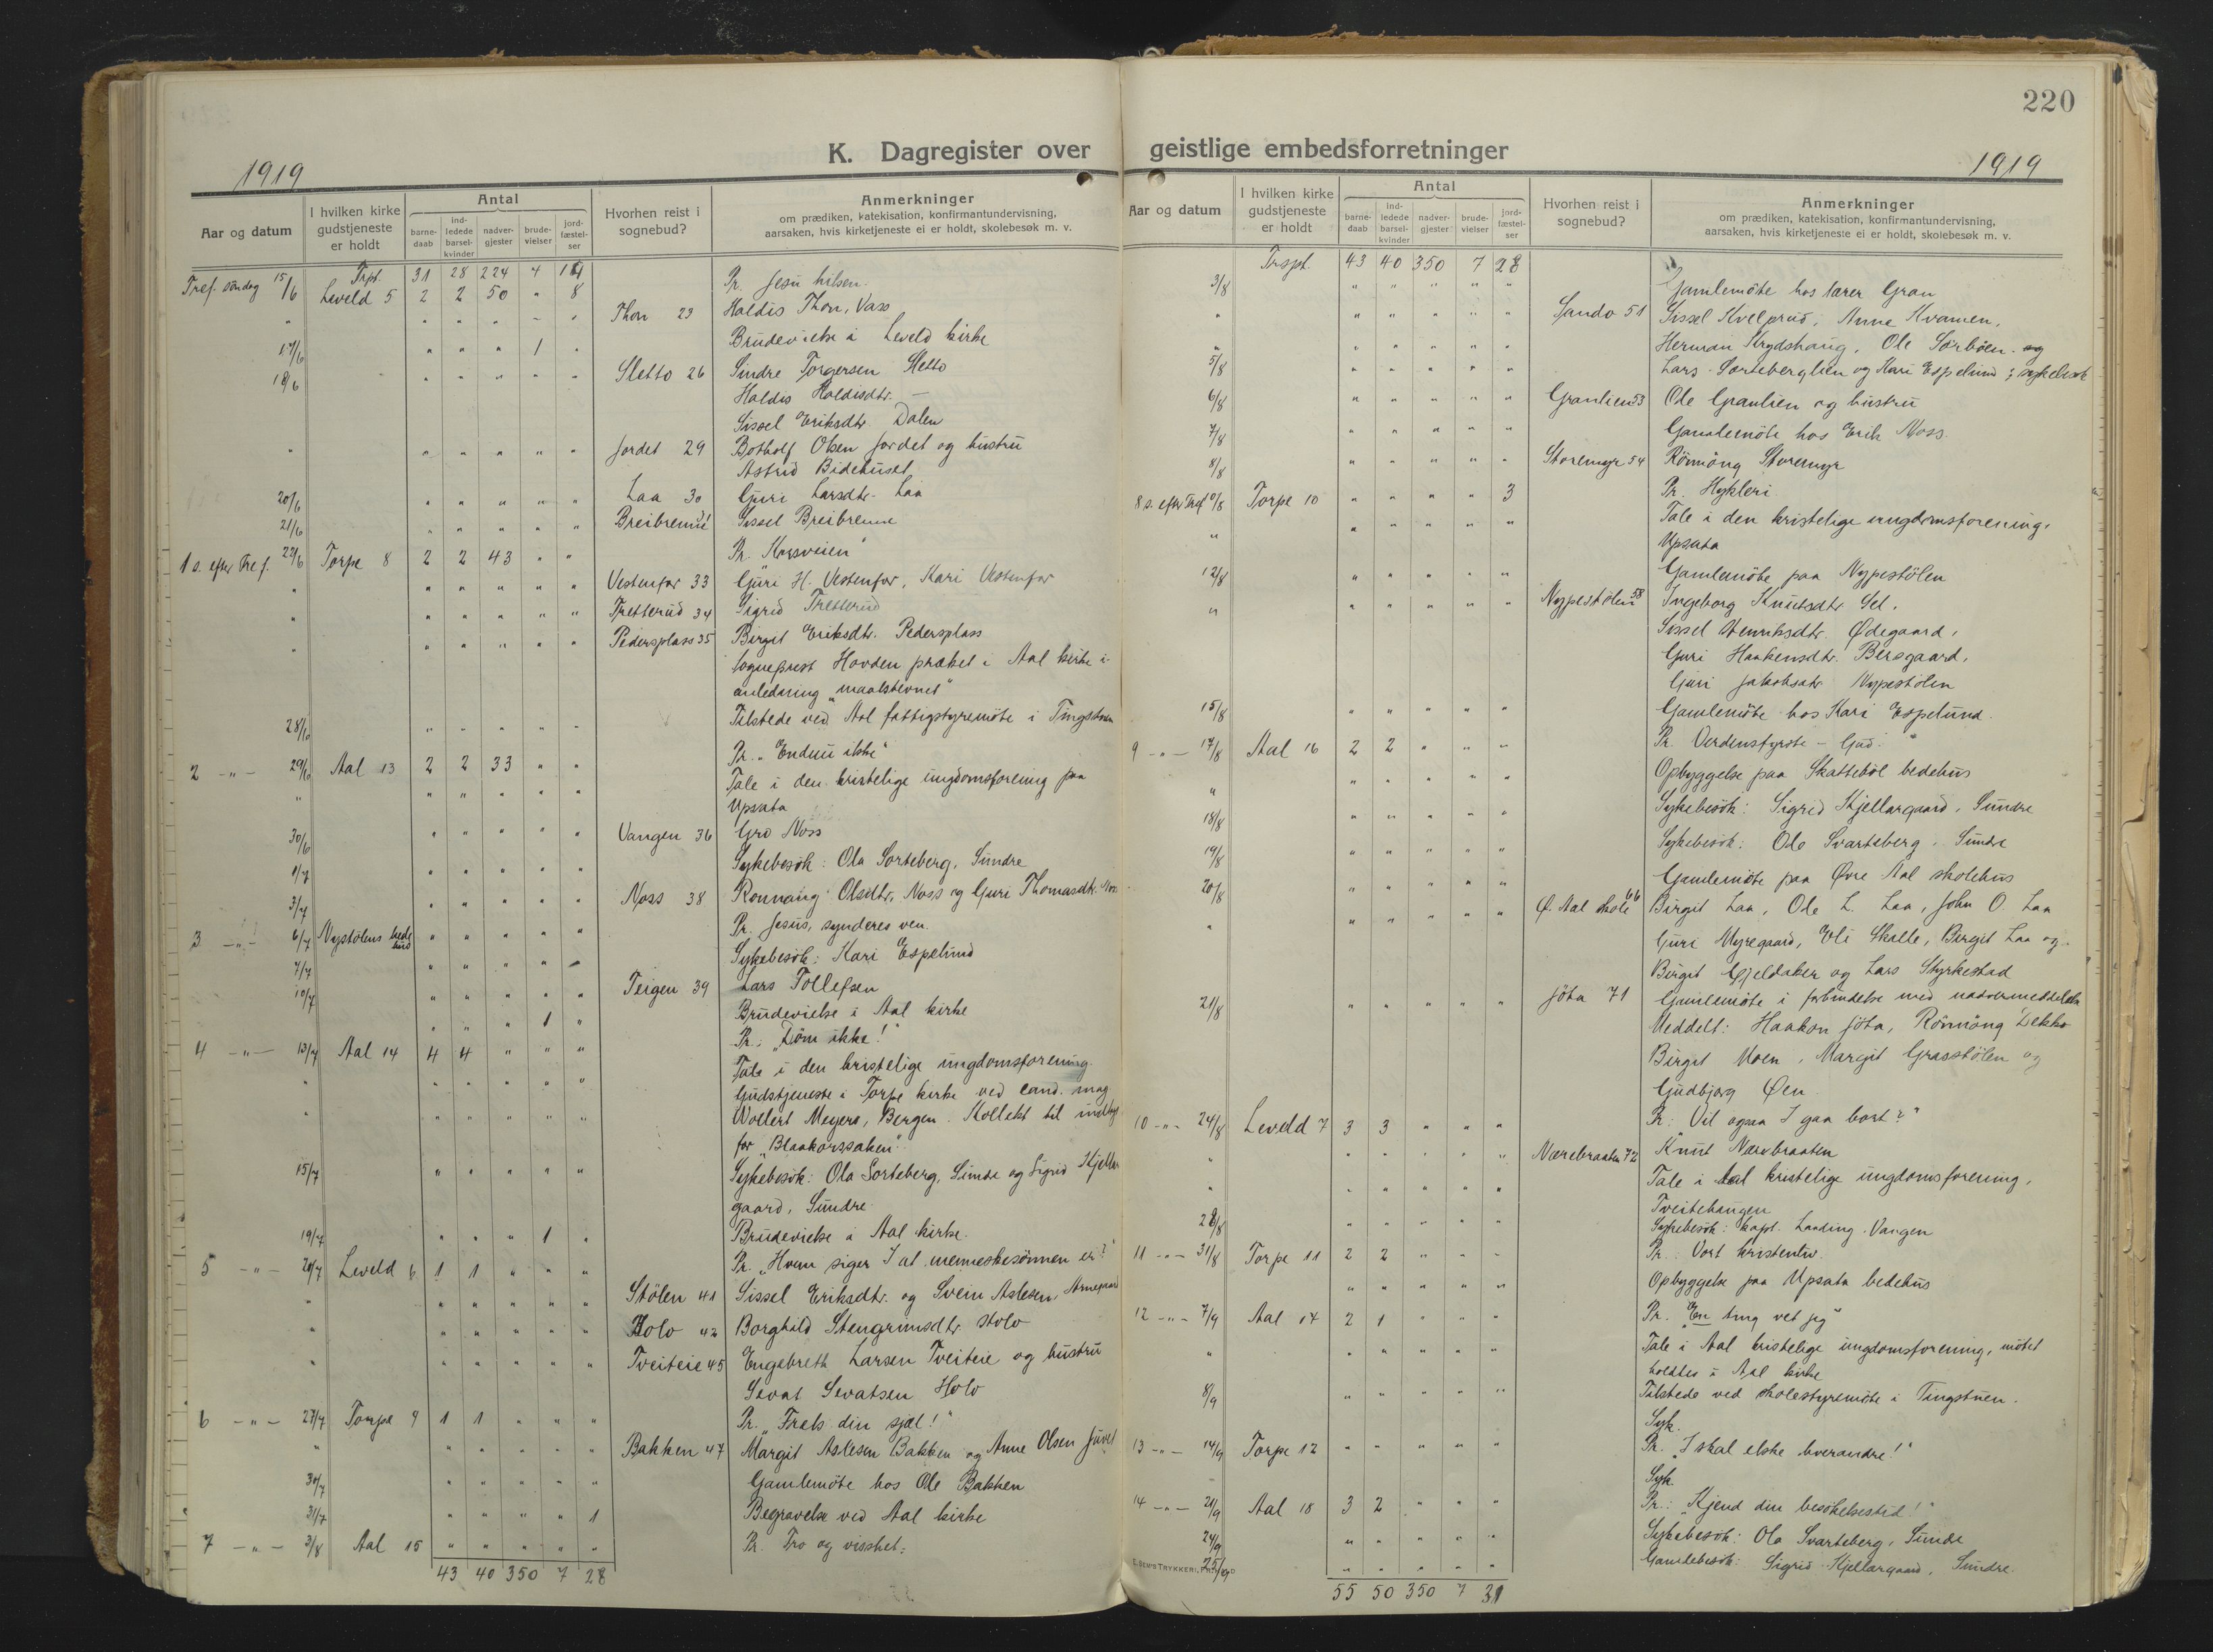 220
K. Dagregister over geistlige embedsforretninger
1919
1919
Aar og datum
I hvilken kirke gudstjeneste er holdt
Antal
barne-daab
ind-ledede barsel-kvinder
nadver-gjester
brude-vielser
jord-fæstel-ser
Hvorhen reist i sognebud?
Anmerkninger
om prædiken, katekisation, konfirmantundervisning,
aarsaken, hvis kirketjeneste ei er holdt, skolebesøk m. v.
Trspt. 31 28 224 4
Tref. søndag 15/6 Leveld 5 2 2 50 " 8 Pr. Jesu hilsen.
" " " " " " Thon 23 Haldis Thon, Vass
17/6 " " " 1 " Brudevielse i Leveld kirke
18/6 " " " " " Sletto 26 Sindre Torgersen Sletto
Haldis Haldisdtr. —
Sissel Eriksdtr. Dalen
" " " " " " Jordet 29 Botholf Olsen Jordet og hustru
Astrid Bidehuset
20/6 " " " " " Laa 30 Guri Larsdtr. Laa
21/6 " " " " " Breibrenna 31 Sissel Breibrenna
1 s. efter Tref. 22/6 Torpe 8 2 2 43 " " Pr. "Korsveien"
" " " " " " Vestenfor 33 Guri H. Vestenfor, Kari Vestenfor
" " " " " " Tretterud 34 Sigrid Tretterud
" " " " " " Pedersplass 35 Birgit Eriksdtr. Pedersplass
Sogneprest Hovden præket i Aal kirke i
anledning "maalstevnet"
28/6 " " " " " Tilstede ved Aal fattigstyremöte i Tingstuen
2 - " - 29/6 Aal 13 2 2 33 " " Pr. "Endnu ikke"
" " " " " " Tale i den kristelige ungdomsforening paa
Upsata
30/6 " " " " " Vangen 36 Gro Noss
1/7 " " " " " Sykebesök: Ola Sorteberg, Sundre
3/7 " " " " " Noss 38 Ronnaug Olsdtr. Noss og Guri Thomasdtr. Noss
3 - " - 6/7 Nystölens bedehus " " " " " Pr. Jesus, synderes ven.
7/7 " " " " " Sykebesök: Kari Espelund
10/7 " " " " " Teigen 39 Lars Tollefsen
" " " 1 " Brudevielse i Aal kirke
4 - " - 13/7 Aal 14 4 4 " " " Pr. "Döm ikke!"
" " " " " " Tale i den kristelige ungdomsforening.
" " " " " " Gudstjeneste i Torpe kirke ved cand. mag
Wollert Meyers, Bergen. Kollekt til
for "Blaakorssaken".
15/7 " " " " " Sykebesök: Ola Sorteberg, Sundre og Sigrid Kjellar
gaard, Sundre.
19/7 " " " 1 " Brudevielse i Aal kirke.
5 - " - 20/7 Leveld 6 1 1 " " " Pr. "Hvem siger I at menneskesönnen er?"
" " " " " " Stölen 41 Sissel Eriksdtr. og Svein Aslesen, Arnegaard
" " " " " " Holo 42 Borghild Stengrimsdtr. Holo
" " " " " " Tveiteie 45 Engebreth Larsen Tveiteie og hustru
Sevat Sevatsen Holo
6 - " - 27/7 Torpe 9 1 1 " " " Pr. "Frels din sjæl!"
" " " " " " Bakken 47 Margit Aslesen Bakken og Anne Olsen Juvet
30/7 " " " " " Gamlemöte hos Ole Bakken
31/7 " " " " 1 Begravelse ved Aal kirke
7 - " - 3/8 Aal 15 " " " " " Pr. Tro og visshet.
43 40 350 7 28
Aar og datum
I hvilken kirke gudstjeneste er holdt
Antal
barne-daab
ind-ledede barsel-kvinder
nadver-gjester
brude-vielser
jord-fæstel-ser
Hvorhen reist i sognebud?
Anmerkninger
om prædiken, katekisation, konfirmantundervisning,
aarsaken, hvis kirketjeneste ei er holdt, skolebesøk m. v.
Trspt. 43 40 350 7 28
3/8 " " " " " Gamlemöte hos lærer Gran
" " " " " " Sando 51 Sissel Kvelprud, Anne Kvamen,
Herman Krydshaug, Ole Sörböen og
5/8 " " " " " Lars Sorteberglien og Kari Espelund; sykebesök
6/8 " " " " " Granlien 53 Ole Granlien og hustru
7/8 " " " " " Gamlemöte hos Erik Noss.
8/8 " " " " " Storemyr 54 Rönnöug Storemyr
8 s. efter Tref. 10/8 Torpe 10 " " " " 3 Pr. Hykleri.
" " " " " " Tale i den kristelige ungdomsforening,
Upsata
12/8 " " " " " Gamlemöte paa Nypestölen
" " " " " " Nypestölen 58 Ingeborg Knutsdtr. Gel.
Sissel Henriksdtr. Ødegaard,
Guri Haakensdtr. Bersgaard,
Guri Jakobsdtr. Nypestölen
15/8 " " " " " Gamlemöte hos Kari Espelund.
9 - " - 17/8 Aal 16 2 2 " " " Pr. "Verdensfyrste – Gud."
" " " " " " Opbyggelse paa Skatteböl bedehus
18/8 " " " " " Sykebesök: Sigrid Kjellargaard, Sundre
19/8 " " " " " Sykebesök: Ole Svarteberg, Sundre
20/8 " " " " " Gamlemöte paa Övre Aal skolehus
" " " " " " Ø. Aal skole 66 Birgit Laa, Ole L. Laa, John O. Laa
Guri Myregaard, Eli Skalle, Birgit Laa og
Birgit Gjeldaker og Lars Styrkestad
21/8 " " " " " Jöta 71 Gamlemöte i forbindelse med nadvermeddelelse
Meddelt: Haakon Jöta, Rönnöug Dekko
Birgit Moen, Margit Grasstölen og
Gudbjorg Øen
10 - " - 24/8 Leveld 7 3 3 " " " Pr. "Vil ogsaa I gaa bort?"
" " " " " " Nærebraaten 72 Knut Nærebraaten
" " " " " " Tale i Aal kristelige ungdomsforening,
Tveitehaugen
28/8 " " " " " Sykebesök: kapt. Laading. Vangen
11 - " - 31/8 Torpe 11 2 2 " " " Pr. Vort kristenliv.
" " " " " Opbyggelse paa Upsata bedehus
12 - " - 7/9 Aal 17 2 1 " " " Pr. "En ting vet jeg"
" " " " " " Tale i Aal kristelige ungdomsforening, mötet
holdtes i Aal kirke
8/9 " " " " " Tilstede ved skolestyremöte i Tingstuen.
Syk.
13 - " - 14/9 Torpe 12 " " " " " Pr. "I skal elske hverandre!"
Syk.
14 - " - 21/9 Aal 18 3 2 " " " Pr.: "Kjend din besökelsestid!"
24/9 " " " " " Sykebesök: Ola Svarteberg, Sundre
25/9 " " " " " Gamlebesök: Sigrid Kjellargaard, Sundre.
55 50 350 7 31